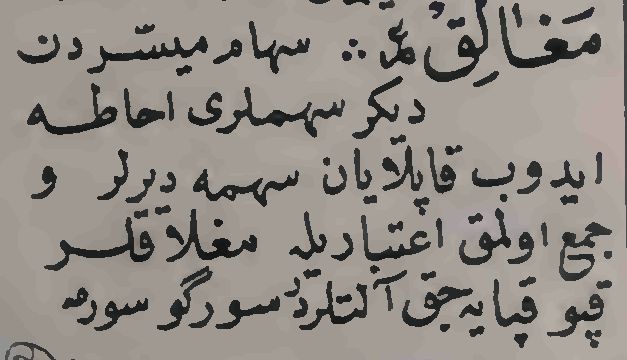 مَغَالِقُ مد ∴ سهام میسّردن
دیكر سهملری احاطه
ایدوب قاپلایان سهمه دیرلر و
جمع اولمق اعتباریله مغلاقلر
قپو قپایه‌جق آلتلردر سورگو سورمه